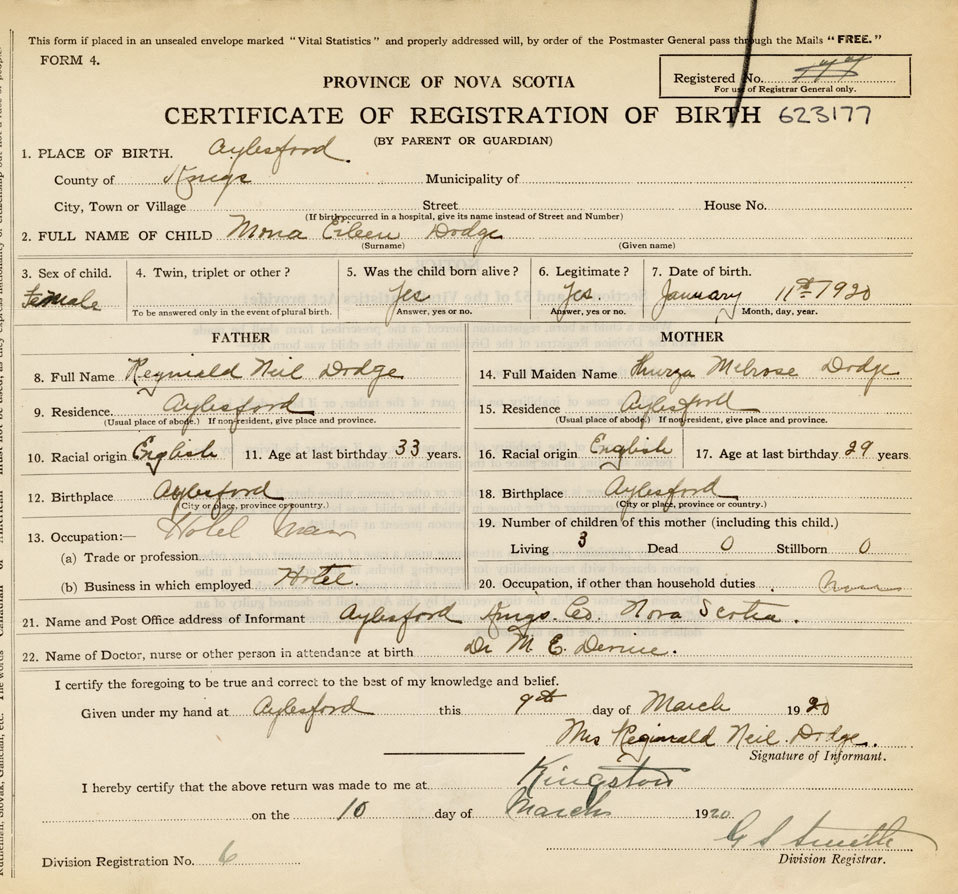 This form if placed in an unsealed envelope marked "Vital Statistics" and properly addressed will, by order of the Postmaster General pass through the Mails "FREE."
FORM 4.
PROVINCE OF NOVA SCOTIA
Registered No.
For use of Registrar General only.
CERTIFICATE OF REGISTRATION OF BIRTH 623177
(BY PARENT OR GUARDIAN)
1. PLACE OF BIRTH. Aylesford.
County of Kings Municipality of
City, Town or Village Street House No.
(If birth occurred in a hospital, give its name instead of Street and Number)
2. FULL NAME OF CHILD Mona Eileen Dodge
(Surname) (Given name)
3. Sex of child. 4. Twin, triplet or other? 5. Was the child born alive? 6. Legitimate? 7. Date of birth.
Female Yes Yes. January 11th 1920
To be answered only in the event of plural birth. Answer, yes or no. Answer, yes or no. Month, day, year.
FATHER MOTHER
8. Full Name Reginald Neil Dodge 14. Full Maiden Name Melrose Dodge
9. Residence. Aylesford 15. Residence Aylesford
(Usual place of abode.) If non-resident, give place and province. (Usual place of abode.) If non-resident, give place and province.
10. Racial origin English 11. Age at last birthday 33 years. 16. Racial origin English 17. Age at last birthday 29 years
12. Birthplace Aylesford 18. Birthplace Aylesford
(City or place, province or country.) (City or place, province or country.)
13. Occupation:— Hotel Man 19. Number of children of this mother (including this child.)
(a) Trade or profession Living 3 Dead 0 Stillborn 0
(b) Business in which employed Hotel. 20. Occupation, if other than household duties
21. Name and Post Office address of Informant Aylesford Kings. Co. Nova Scotia.
22. Name of Doctor, nurse or other person in attendance at birth Dr M. E.
I certify the foregoing to be true and correct to the best of my knowledge and belief.
Given under my hand at Aylesford this 9th day of March 1920
Mrs Reginald Neil Dodge.
Signature of Informant.
I hereby certify that the above return was made to me at Kingston
on the 10 day of March 1920.
G S Smith
Division Registration No. 6 Division Registrar.